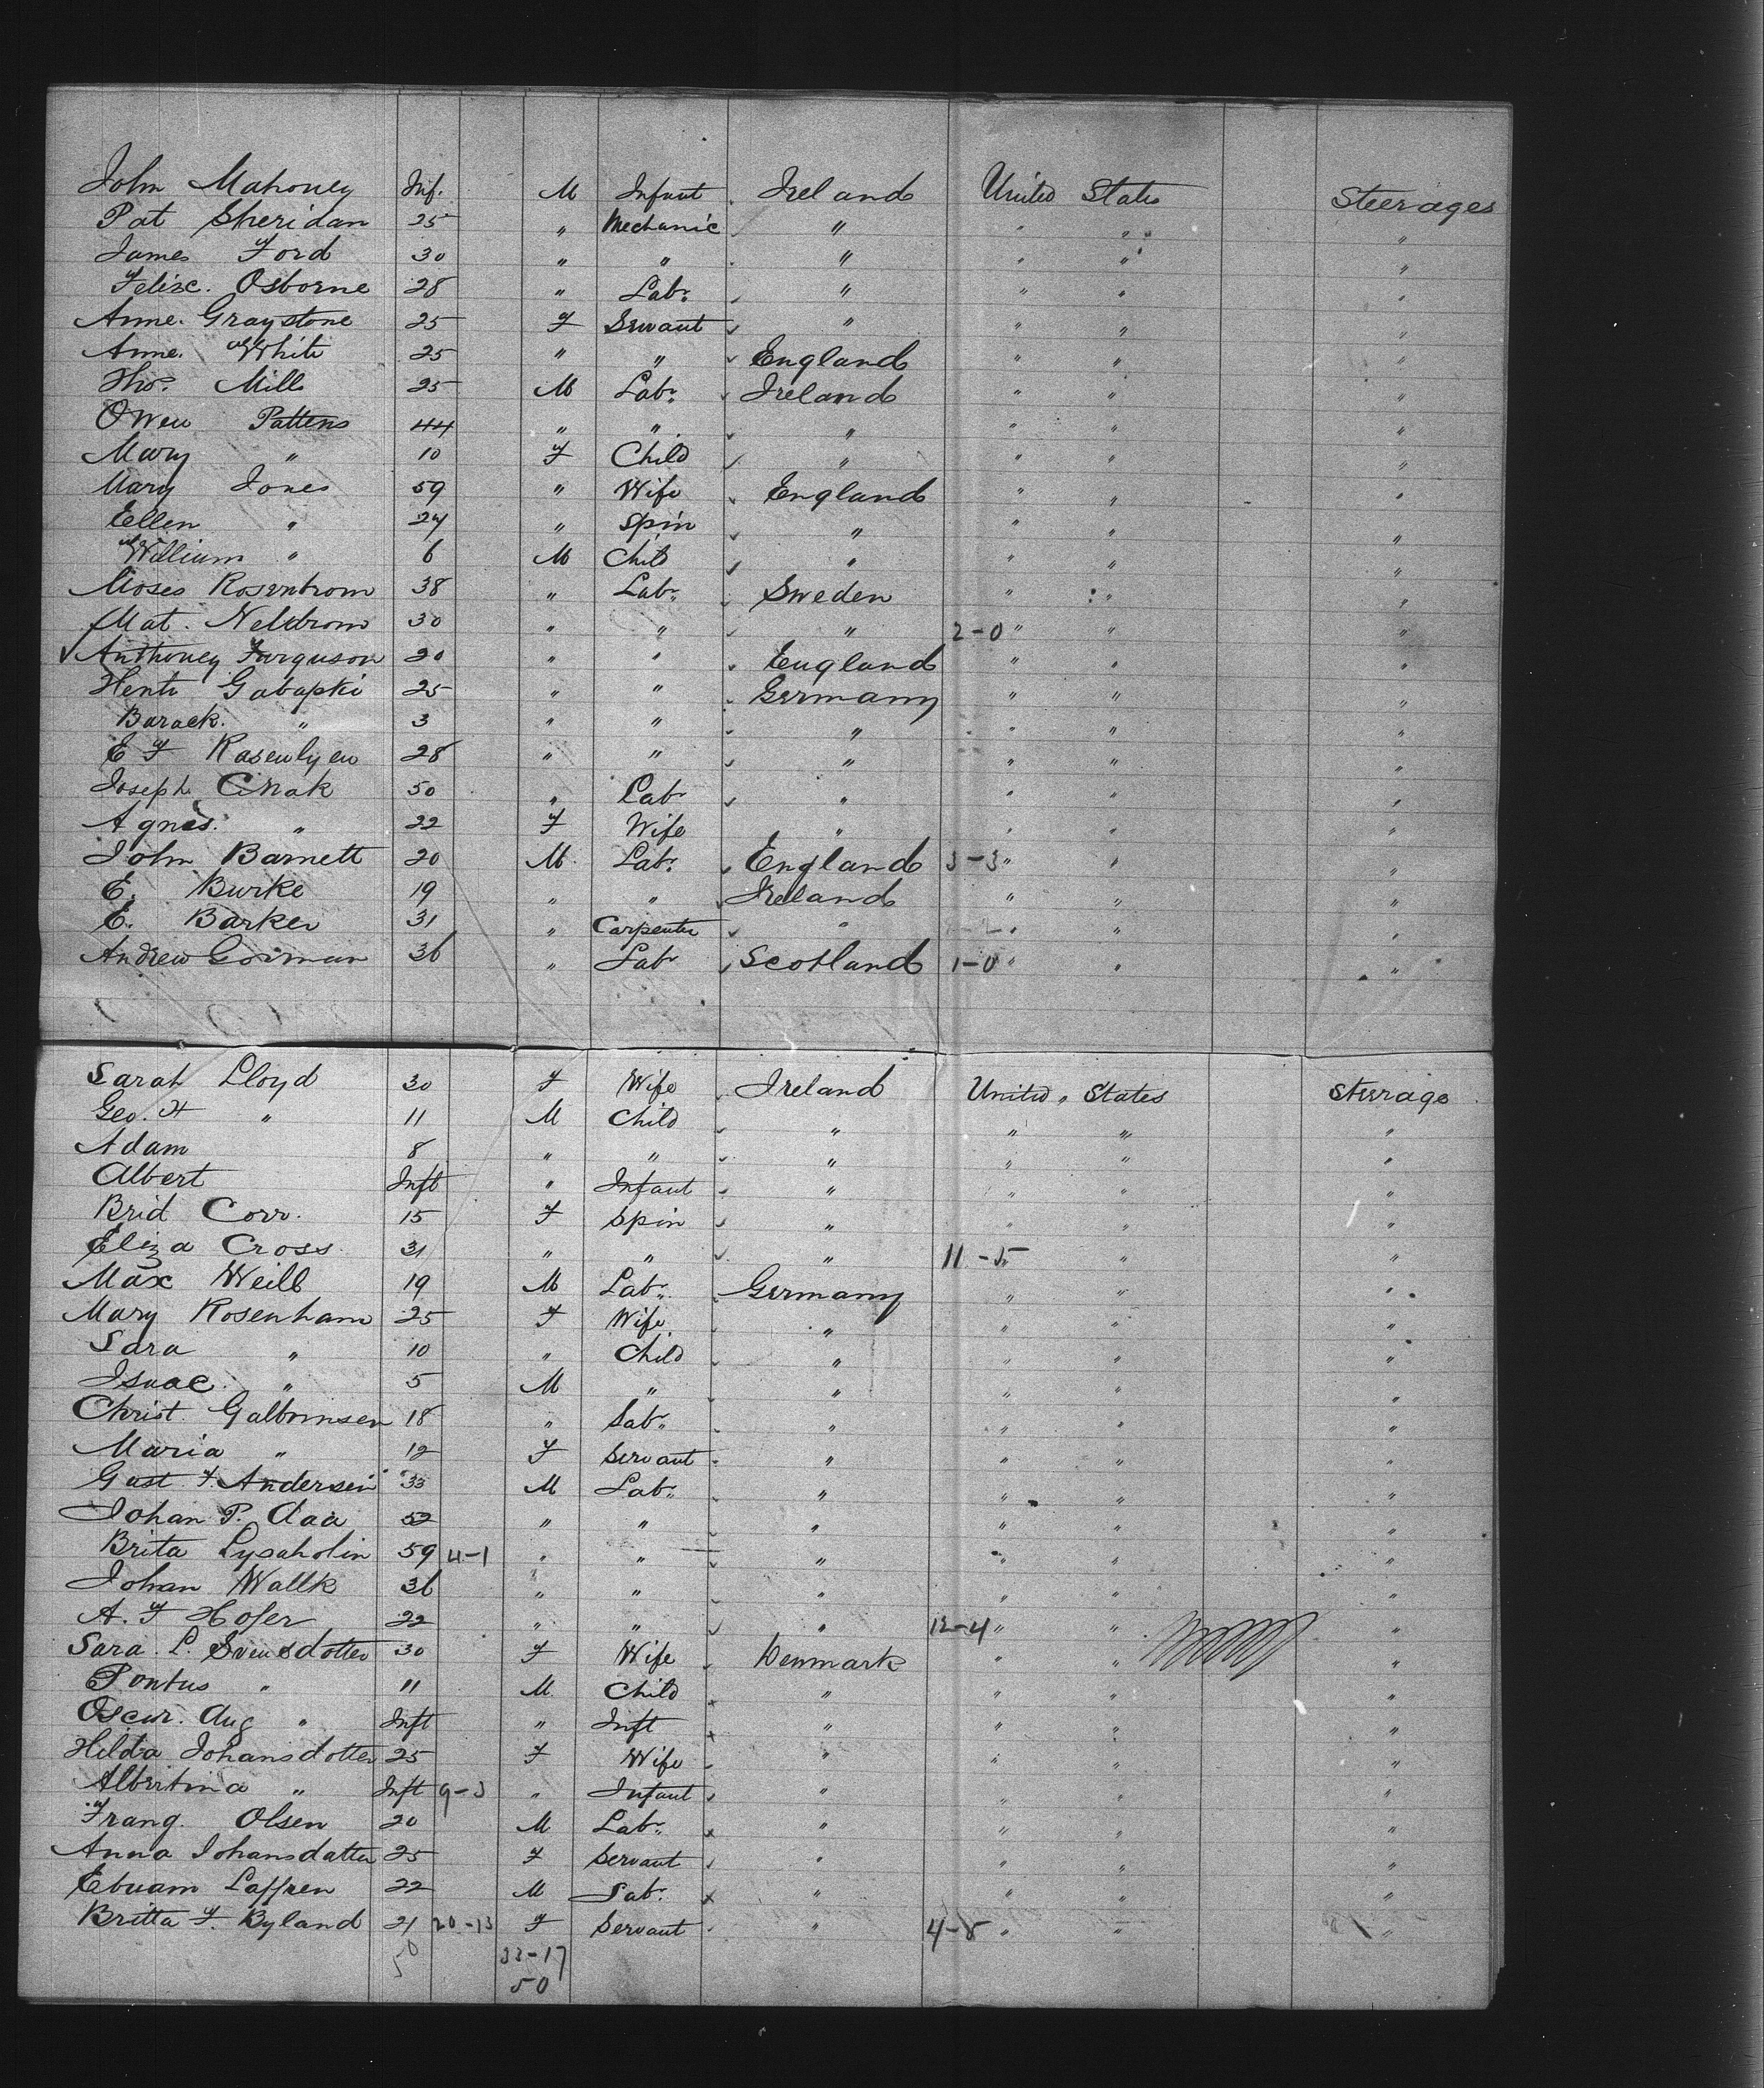 John Mahoney Inf. M Infant Ireland United States Steerages
Pat Sheridan 25 " Mechanic " " " "
James Ford 30 " " " " " "
Felixc. Osborne 28 " Labr. " " " "
Anne. Graystone 25 F Servant " " " "
Anne. White 25 " " England " " "
Thos. Mills 25 M Labr. Ireland " " "
Owen Pattens 44 " " " " " "
Mary " 10 F Child " " " "
Mary Jones 59 " Wife England " " "
Ellen " 24 " Spin " " " "
William " 6 M Child " " " "
Moses Rosentrom 38 " Labr. Sweden " " "
Mat. Neldrom 30 " " " 2-0 " " "
√ Anthoney Furguson 20 " " England " " "
Gabapki 25 " " Germany " " "
Barack. " 3 " " " " " "
E F Rasenlyen 28 " " " " " "
Joseph 50 " Labr " " " "
Agnes. " 22 F Wife " " " "
John Barnett 20 M Labr. England 3-3 " " "
E. Burke 19 " " Ireland " " "
E. Barker 31 " Carpenter " " " "
Andrew Gorman 36 " Labr Scotland 1-0 " " "
Sarah Lloyd 30 F Wife Ireland United States Steerage
Geo. H " 11 M Child " " " "
Adam 8 " " " " " "
Albert Inft " Infant " " " "
Brid Corr. 15 F Spin " " " "
Eliza Cross 31 " " " 11-5 " "
Max Weill 19 M Labr. Germany " " "
Mary Rosenham 25 F Wife " " " "
Sara " 10 " Child " " " "
Isaac " 5 M " " " " "
Christ. Galbrunsen 18 " Labr. " " " "
Maria " 12 F Servant " " " "
Gust. F. Andersen 33 M Labr. " " " "
Johan P. Aaa 52 " " " " " "
Brita Lysaholin 59 4-1 " " " " " "
Johan Wallk 36 " " " " " "
A. F Hofer 22 " " " 12-4 " " "
Sara. L. Svensdotter 30 F Wife Denmark " " "
Pontus " 11 M. Child " " " "
Oscar. Aug " Inft " Inft " " " "
Hilda Johansdotter 25 F Wife " " " "
Albertina " Inft 9-3 " Infant " " " "
Frang. Olsen 20 M Labr. " " " "
Anna Johansdatter 25 F Servant " " " "
Ebuam Laffren 22 M Labr. " " " "
Britta F. Byland 21 20-13 F Servant " 4-8 " " "
50 33-17
50